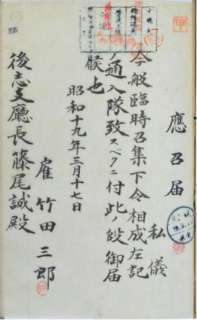 應召届
私儀
今般臨時召集下令相成左記
ノ通入隊致スベクニ付此ノ段御届
候也
昭和十九年三月十七日
雇 竹田三郎
後志支廳長 藤尾誠殿